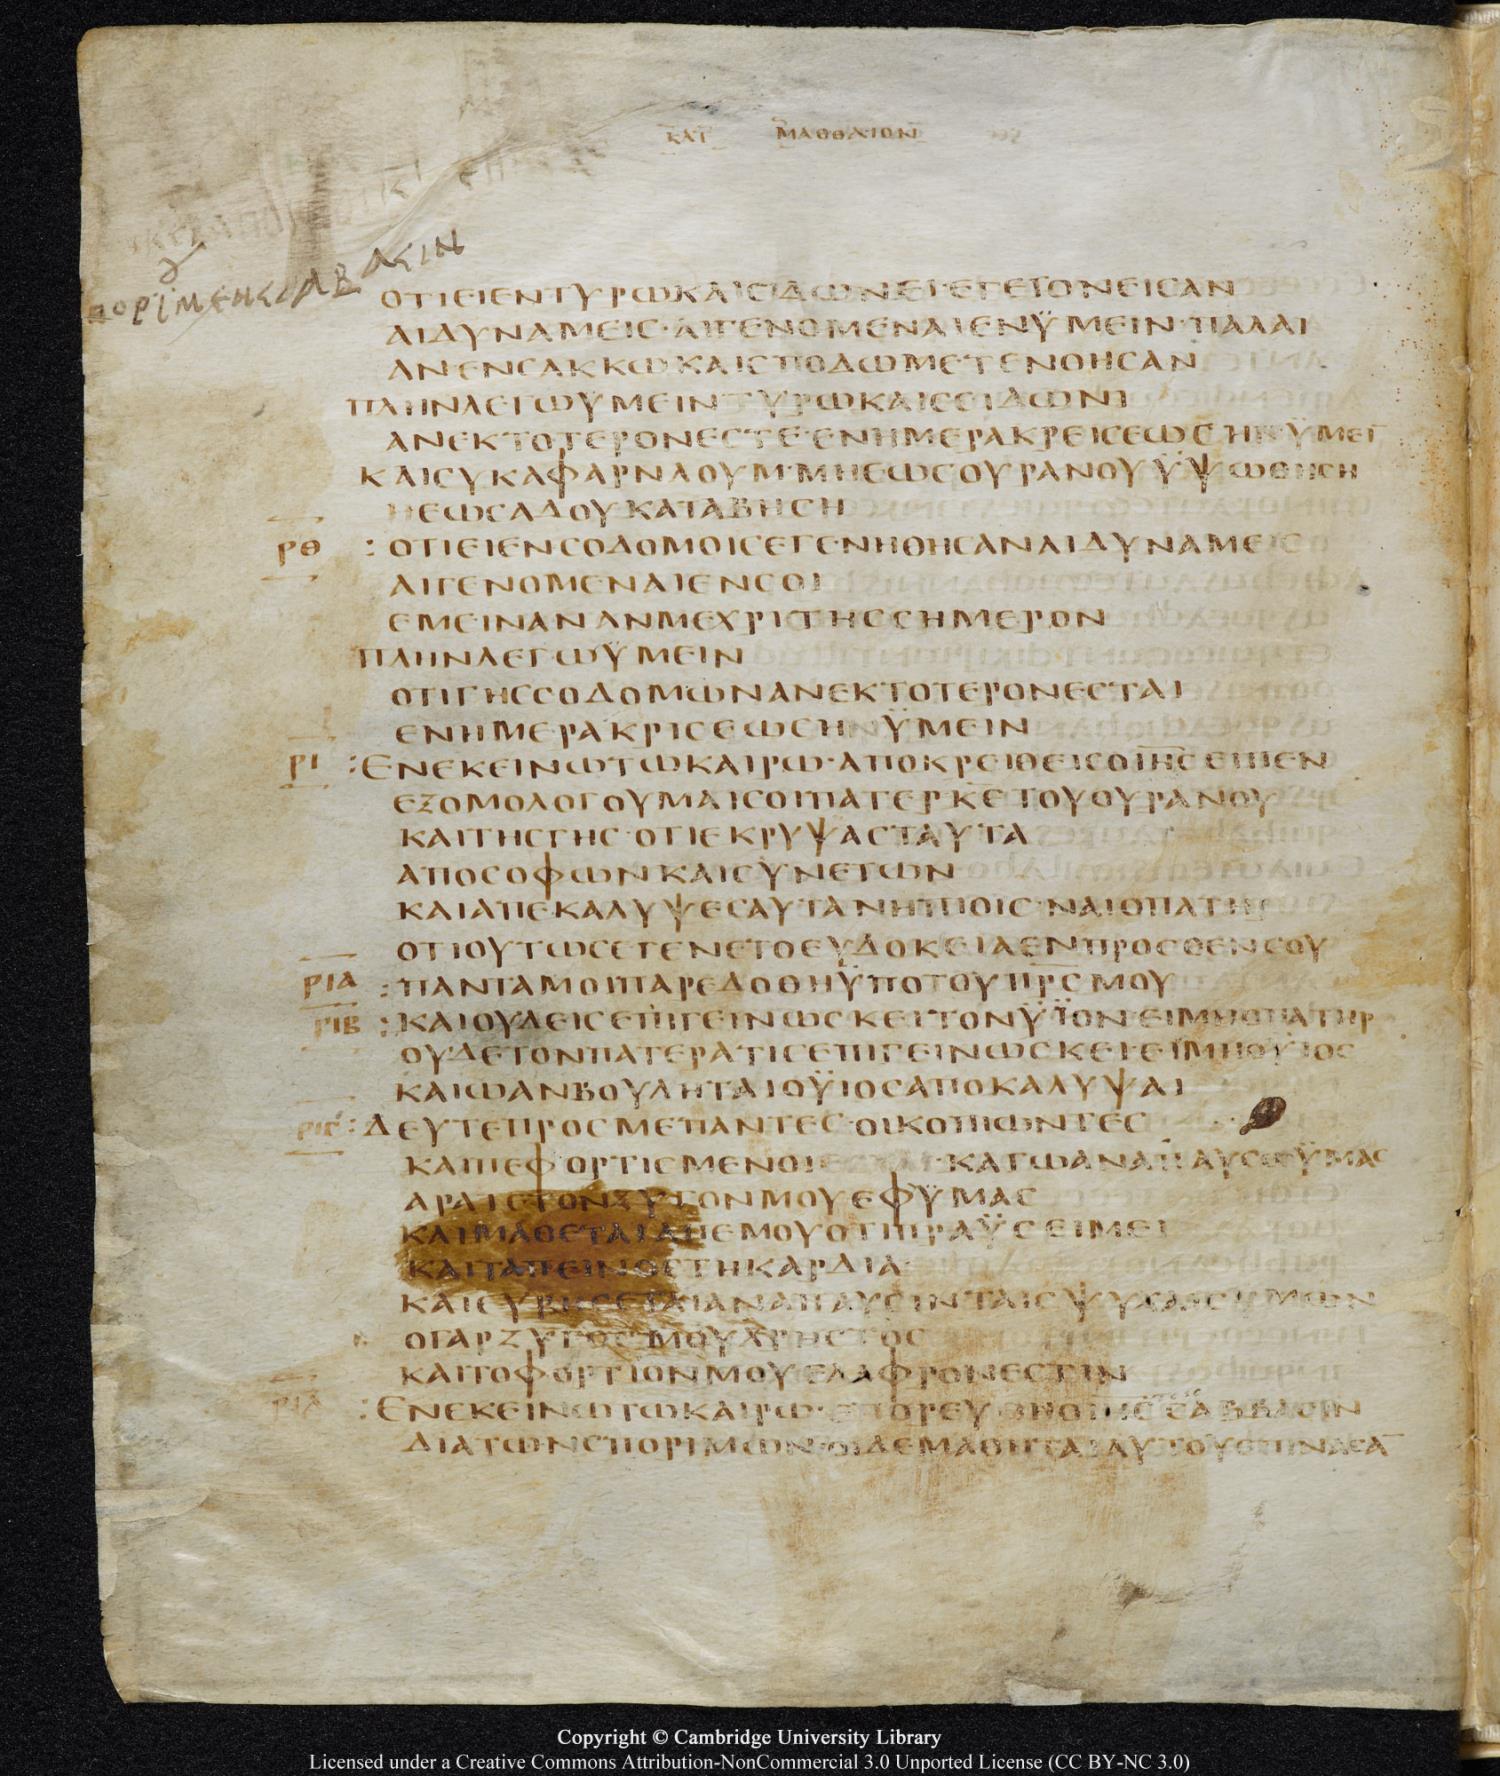 ΚΑΤ ΜΑΘΘΑΙΟΝ
ΟΤΙΕΙΕΝΤΥΡΩΚΑΙCΙΔΩΝΕΙΕΓΕΓΟΝΕΙCΑΝ
ΑΙΔΥΝΑΜΕΙC·ΑΙΓΕΝΟΜΕΝΑΙΕΝΫΜΕΙΝ·ΠΑΛΑΙ
ΑΝΕΝCΑΚΚΩΚΑΙCΠΟΔΩΜΕΤΕΝΟΗCΑΝ
ΠΛΗΝΛΕΓΩΫΜΕΙΝΤΥΡΩΚΑΙCΕΙΔΩΝΙ
ΑΝΕΚΤΟΤΕΡΟΝΕCΤΕ·ΕΝΗΜΕΡΑΚΡΕΙCΕΩC
ΚΑΙCΥΚΑΦΑΡΝΑΟΥΜ·ΜΗΕΩCΟΥΡΑΝΟΥΫΨΩΘΗCΗ
ΗΕΩCΑΔΟΥΚΑΤΑΒΗCΗ
ΡΘ :ΟΤΙΕΙΕΝCΟΔΟΜΟΙCΕΓΕΝΗΘΗCΑΝΑΙΔΥΝΑΜΕΙC
ΑΙΓΕΝΟΜΕΝΑΙΕΝCΟΙ
ΕΜΕΙΝΑΝΑΝΜΕΧΡΙΤΗCCΗΜΕΡΟΝ
ΠΛΗΝΛΕΓΩΫΜΕΙΝ
ΟΤΙΓΗCCΟΔΟΜΩΝΑΝΕΚΤΟΤΕΡΟΝΕCΤΑΙ
ΕΝΗΜΕΡΑΚΡΙCΕΩCΗΝΫΜΕΙΝ
ΡΙ :ΕΝΕΚΕΙΝΩΤΩΚΑΙΡΩ·ΑΠΟΚΡΕΙΘΕΙCΟΙΗCΕΙΠΕΝ
ΕΞΟΜΟΛΟΓΟΥΜΑΙCΟΙΠΑΤΕΡΚΕΤΟΥΟΥΡΑΝΟΥ
ΚΑΙΤΗCΓΗC·ΟΤΙΕΚΡΥΨΑCΤΑΥΤΑ
ΑΠΟCΟΦΩΝΚΑΙCΥΝΕΤΩΝ
ΚΑΙΑΠΕΚΑΛΥΨΕCΑΥΤΑΝΗΠΙΟΙC·ΝΑΙΟΠΑΤΗΡ
ΟΤΙΟΥΤΩCΕΓΕΝΕΤΟΕΥΔΟΚΕΙΑΕΝΠΡΟCΘΕΝCΟΥ
ΡΙΑ :ΠΑΝΤΑΜΟΙΠΑΡΕΔΟΘΗΫΠΟΤΟΥΠΡCΜΟΥ
ΡΙΒ :ΚΑΙΟΥΔΕΙCΕΠΙΓΕΙΝΩCΚΕΙΤΟΝΫΙΟΝ·ΕΙΜΗΟΠΑΤΗΡ
ΟΥΔΕΤΟΝΠΑΤΕΡΑΤΙCΕΠΙΓΕΙΝΩCΚΕΙΕΙΜΗΟΥΙΟC
ΚΑΙΩΑΝΒΟΥΛΗΤΑΙΟΫΙΟCΑΠΟΚΑΛΥΨΑΙ
ΡΙΓ :ΔΕΥΤΕΠΡΟCΜΕΠΑΝΤΕC·ΟΙΚΟΠΙΩΝΤΕC
ΚΑΙΠΕΦΟΡΤΙCΜΕΝΟΙ ΚΑΓΩΑΝΑΠΑΥCΩΫΜΑC
ΑΡΑΤΕΤΟΝΖΥΓΟΝΜΟΥΕΦΫΜΑC
ΚΑΙΜΑΘΕΤΑΙΑΠΕΜΟΥΟΤΙΠΡΑΫCΕΙΜΕΙ
ΚΑΙΤΑΠΕΙΝΟCΤΗΚΑΡΔΙΑ·
ΚΑΙΕΥΡΗCΕΤΑΙΑΝΑΠΑΥCΙΝΤΑΙCΨΥΧΑΙCΥΜΩΝ
ΟΓΑΡΖΥΓΟCΜΟΥΧΡΗCΤΟC
ΚΑΙΤΟΦΟΡΤΙΟΝΜΟΥΕΛΑΦΡΟΝΕCΤΙΝ
ΡΙΔ :ΕΝΕΚΕΙΝΩΤΩΚΑΙΡΩ·ΕΠΟΡΕΥΘΗΟΙΗCCΑΒΒΑCΙΝ
ΔΙΑΤΩΝCΠΟΡΙΜΩΝ·ΟΙΔΕΜΑΘΗΤΑΙΑΥΤΟΥΕΠΙΝΑCΑ
Copyright © Cambridge University Library
Licensed under a Creative Commons Attribution-NonCommercial 3.0 Unported License (CC BY-NC 3.0)